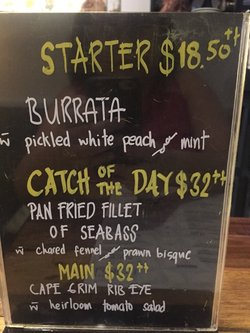 STARTER $18.50++
BURRATA
w̄ pickled white peach & mint
CATCH OF THE DAY $32++
PAN FRIED FILLET
OF SEABASS
w̄ chared fennel & prawn bisque
MAIN $32++
CAPE GRIM RIB EYE
w̄ heirloom tomato salad